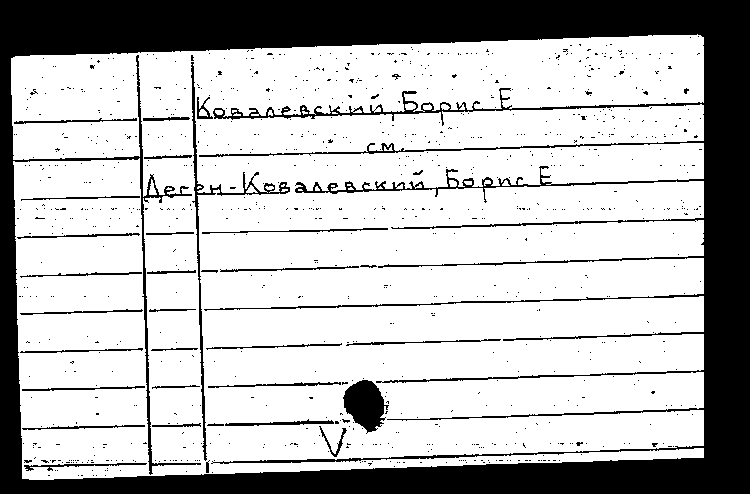 Ковалевский, Борис Е
см.
Десен-Ковалевский, Борис Е